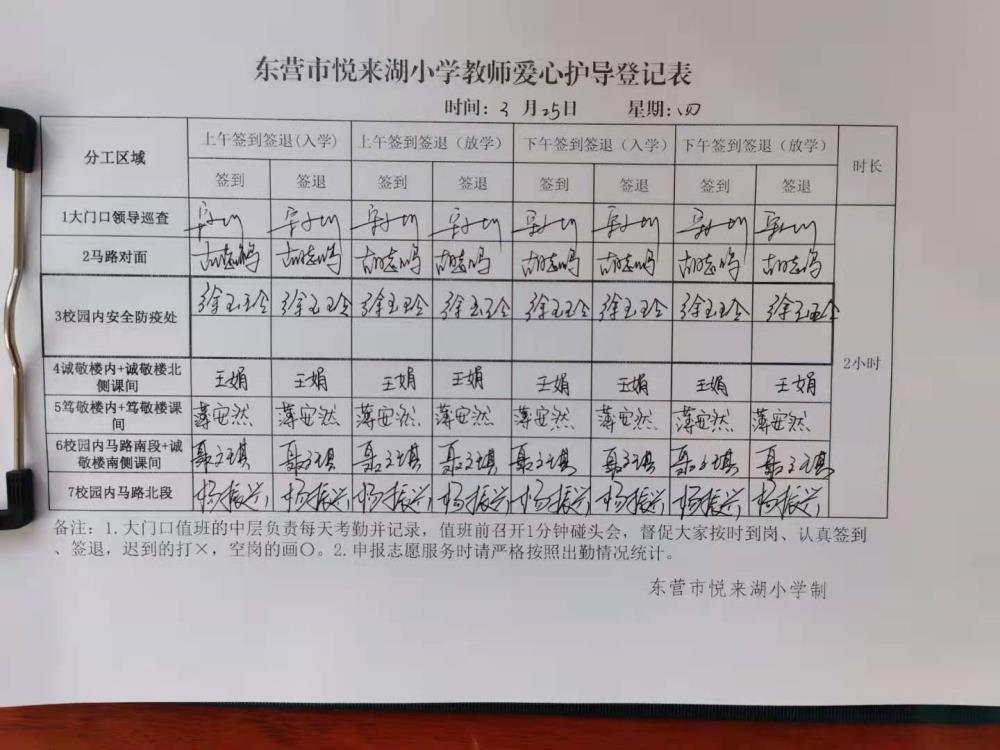 东营市悦来湖小学教师爱心护导登记表
时间: 3 月 25日 星期: 四
分工区域 上午签到签退(入学) 上午签到签退（放学） 下午签到签退（入学） 下午签到签退（放学） 时长
签到 签退 签到 签退 签到 签退 签到 签退
1大门口领导巡查
2马路对面 胡志鸣 胡志鸣 胡志鸣 胡志鸣 胡志鸣 胡志鸣 胡志鸣 胡志鸣
3校园内安全防疫处 徐玉玲 徐玉玲 徐玉玲 徐玉玲 徐玉玲 徐玉玲 徐玉玲 徐玉玲
2小时
4诚敬楼内+诚敬楼北
侧课间 王娟 王娟 王娟 王娟 王娟 王娟 王娟 王娟
5笃敬楼内+笃敬楼课
间 薄安然 薄安然 薄安然 薄安然 薄安然 薄安然 薄安然 薄安然
6校园内马路南段+诚
敬楼南侧课间 聂文琪 聂文琪 聂文琪 聂文琪 聂文琪 聂文琪 聂文琪 聂文琪
7校园内马路北段 杨振兴 杨振兴 杨振兴 杨振兴 杨振兴 杨振兴 杨振兴 杨振兴
备注：1.大门口值班的中层负责每天考勤并记录，值班前召开1分钟碰头会，督促大家按时到岗、认真签到
、签退，迟到的打×，空岗的画〇。2.申报志愿服务时请严格按照出勤情况统计。
东营市悦来湖小学制